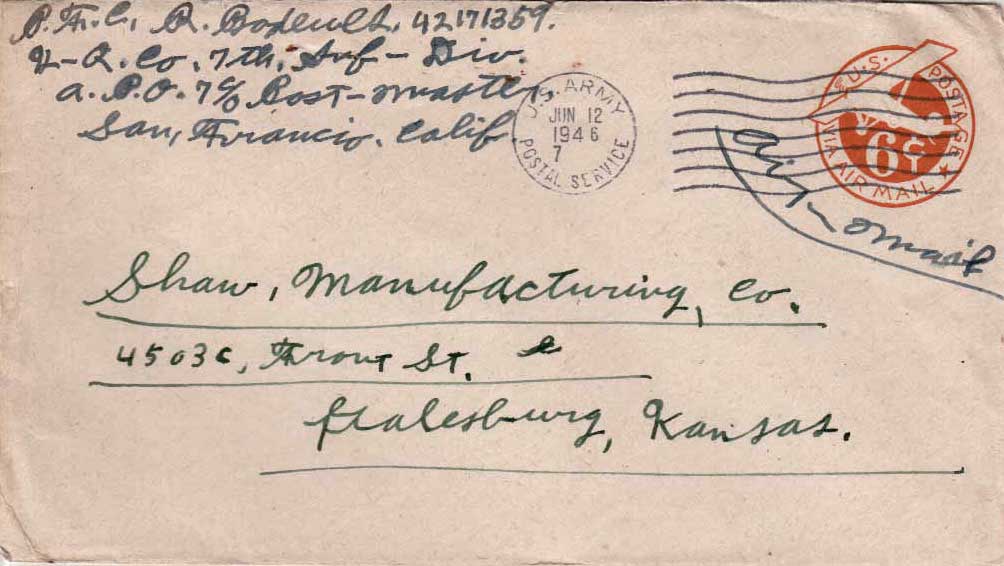 P.F.C. R. Bodeult. 42171359.
H-Q. Co. 7th. Inf-Div.
a.P.O. 7 c/o Post-master
San, Francis. Calif
U.S. ARMY
JUN 12
1946
7
POSTAL SERVICE
U.S. POSTAGE
6¢
VIA AIR MAIL
Air-mail
Shaw, Manufacturing, Co.
4503c, Front St.
Galesburg, Kansas.